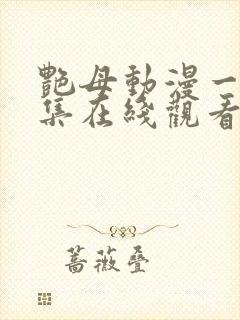 艷母動漫一
集在綫觀看
薔薇疊